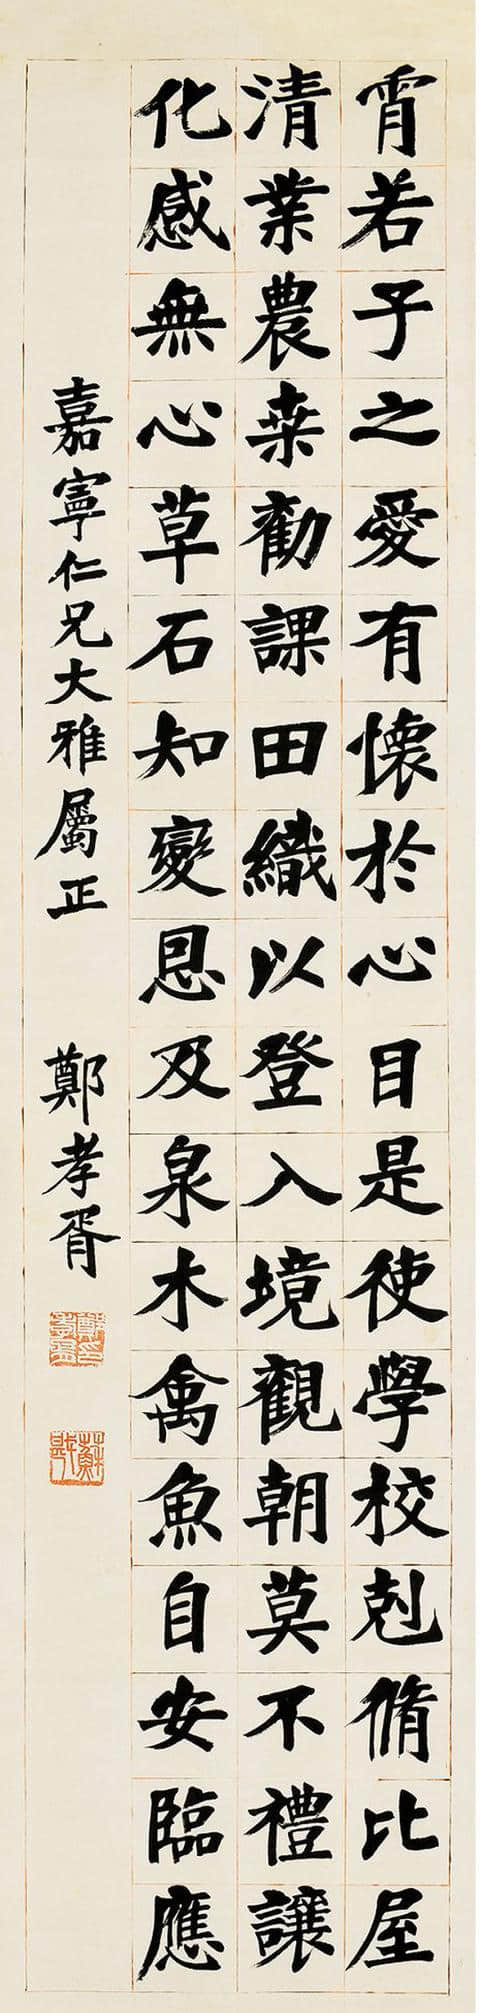 霄若子之愛有懷於心目是使學校剋脩比屋
清業農桒勸課田織以登入境觀朝莫不禮讓
化感無心草石知變恩及泉木禽魚自安臨應
嘉寧仁兄大雅屬正 鄭孝胥